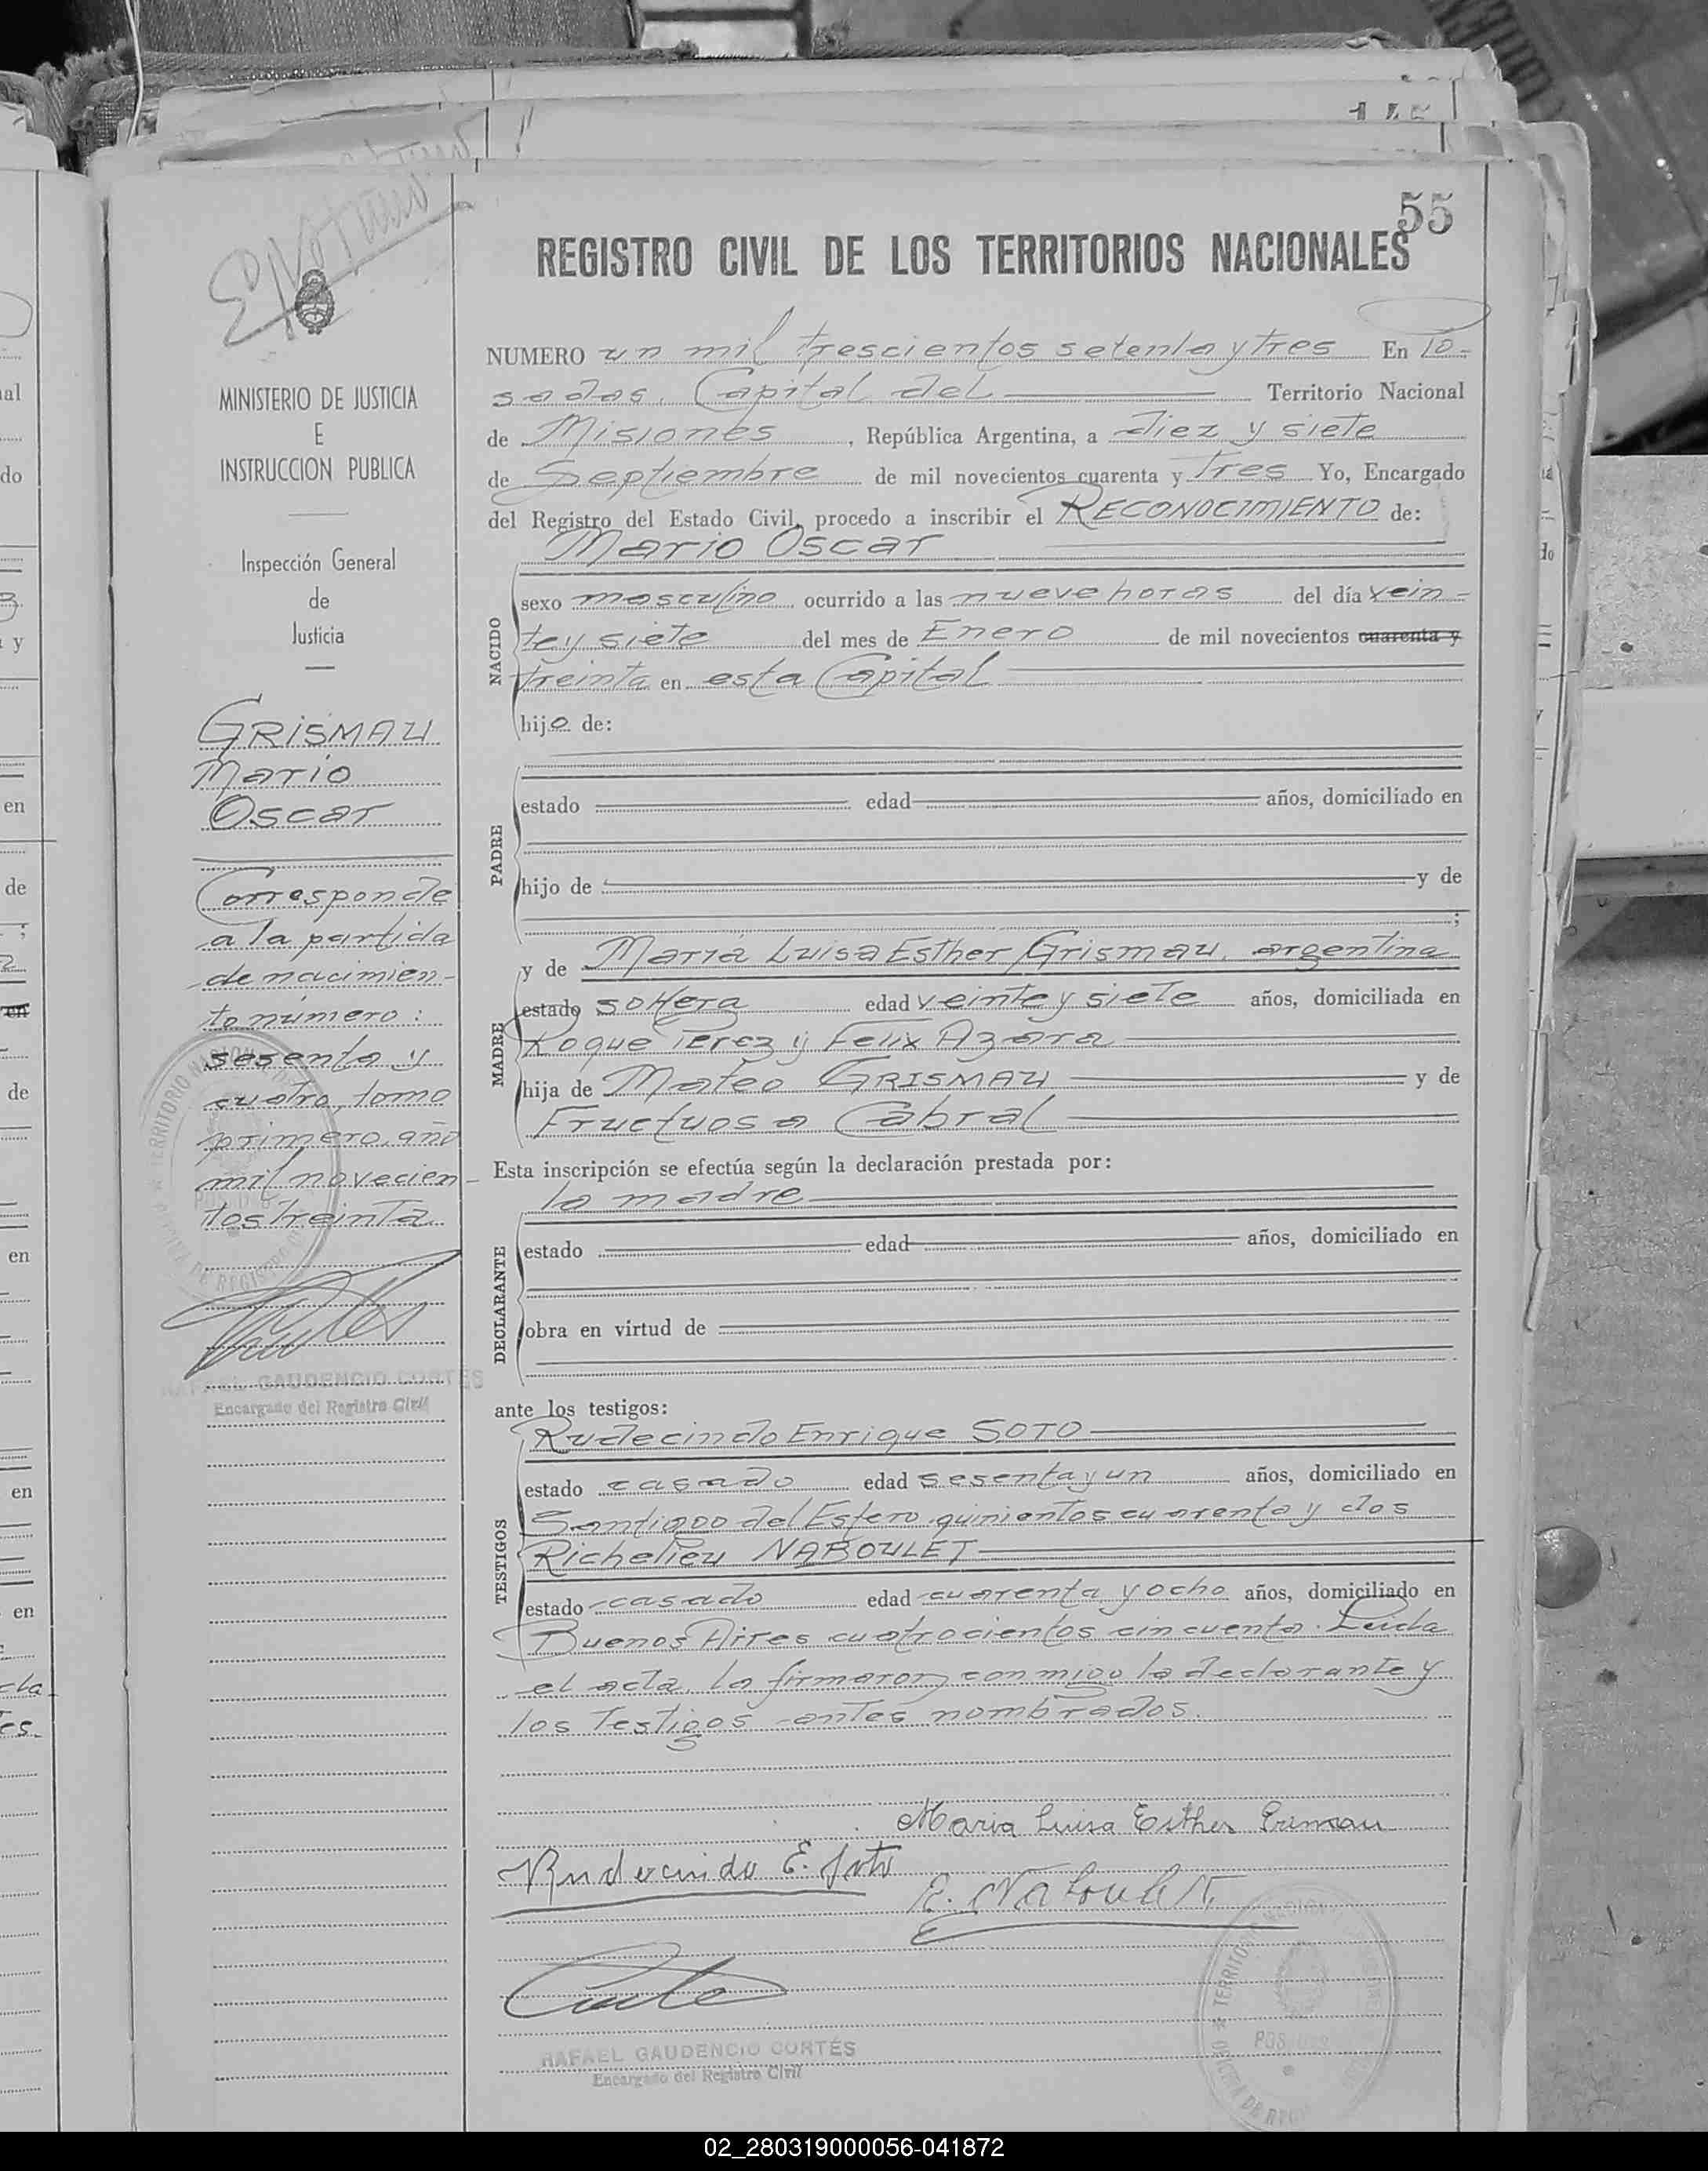 145
55
REGISTRO CIVIL DE LOS TERRITORIOS NACIONALES
MINISTERIO DE JUSTICIA
E
INSTRUCCION PUBLICA
Inspección General
de
Justicia
GRISMAU
Mario
Oscar
Corresponde
a la partida
de nacimien-
to número:
sesenta y
cuatro, tomo
primero, año
mil novecien-
tos treinta
RAFAEL GAUDENCIO CORTÉS
Encargado del Registro Civil
NUMERO un mil trescientos setenta y tres En Po-
sadas, Capital del Territorio Nacional
de Misiones, República Argentina, a diez y siete
de Septiembre de mil novecientos cuarenta y Tres Yo, Encargado
del Registro del Estado Civil, procedo a inscribir el RECONOCIMIENTO de:
Mario Oscar
NACIDO
sexo masculino ocurrido a las nueve horas del día vein-
te y siete del mes de Enero de mil novecientos cuarenta y
treinta en esta Capital
hijo de:
PADRE
estado edad años, domiciliado en
hijo de y de
;
y de María Luisa Esther Grismau, argentina
MADRE
estado soltera edad veinte y siete años, domiciliada en
Roque Perez y Felix Azara
hija de Mateo GRISMAU y de
Fructuosa Cabral
Esta inscripción se efectúa según la declaración prestada por:
la madre
DECLARANTE
estado edad años, domiciliado en
obra en virtud de
ante los testigos:
Rudecindo Enrique SOTO
TESTIGOS
estado casado edad sesenta y un años, domiciliado en
Santiago del Estero quinientos cuarenta y dos
Richelieu NABOULET
estado casado edad cuarenta y ocho años, domiciliado en
Buenos Aires cuatrocientos cincuenta. Leida
el acta, la firmaron conmigo la declarante y
los Testigos antes nombrados.
Maria Luisa Esther Grismau
Rudecindo E. Soto
R. Naboulet
RAFAEL GAUDENCIO CORTÉS
Encargado del Registro Civil
02_280319000056-041872